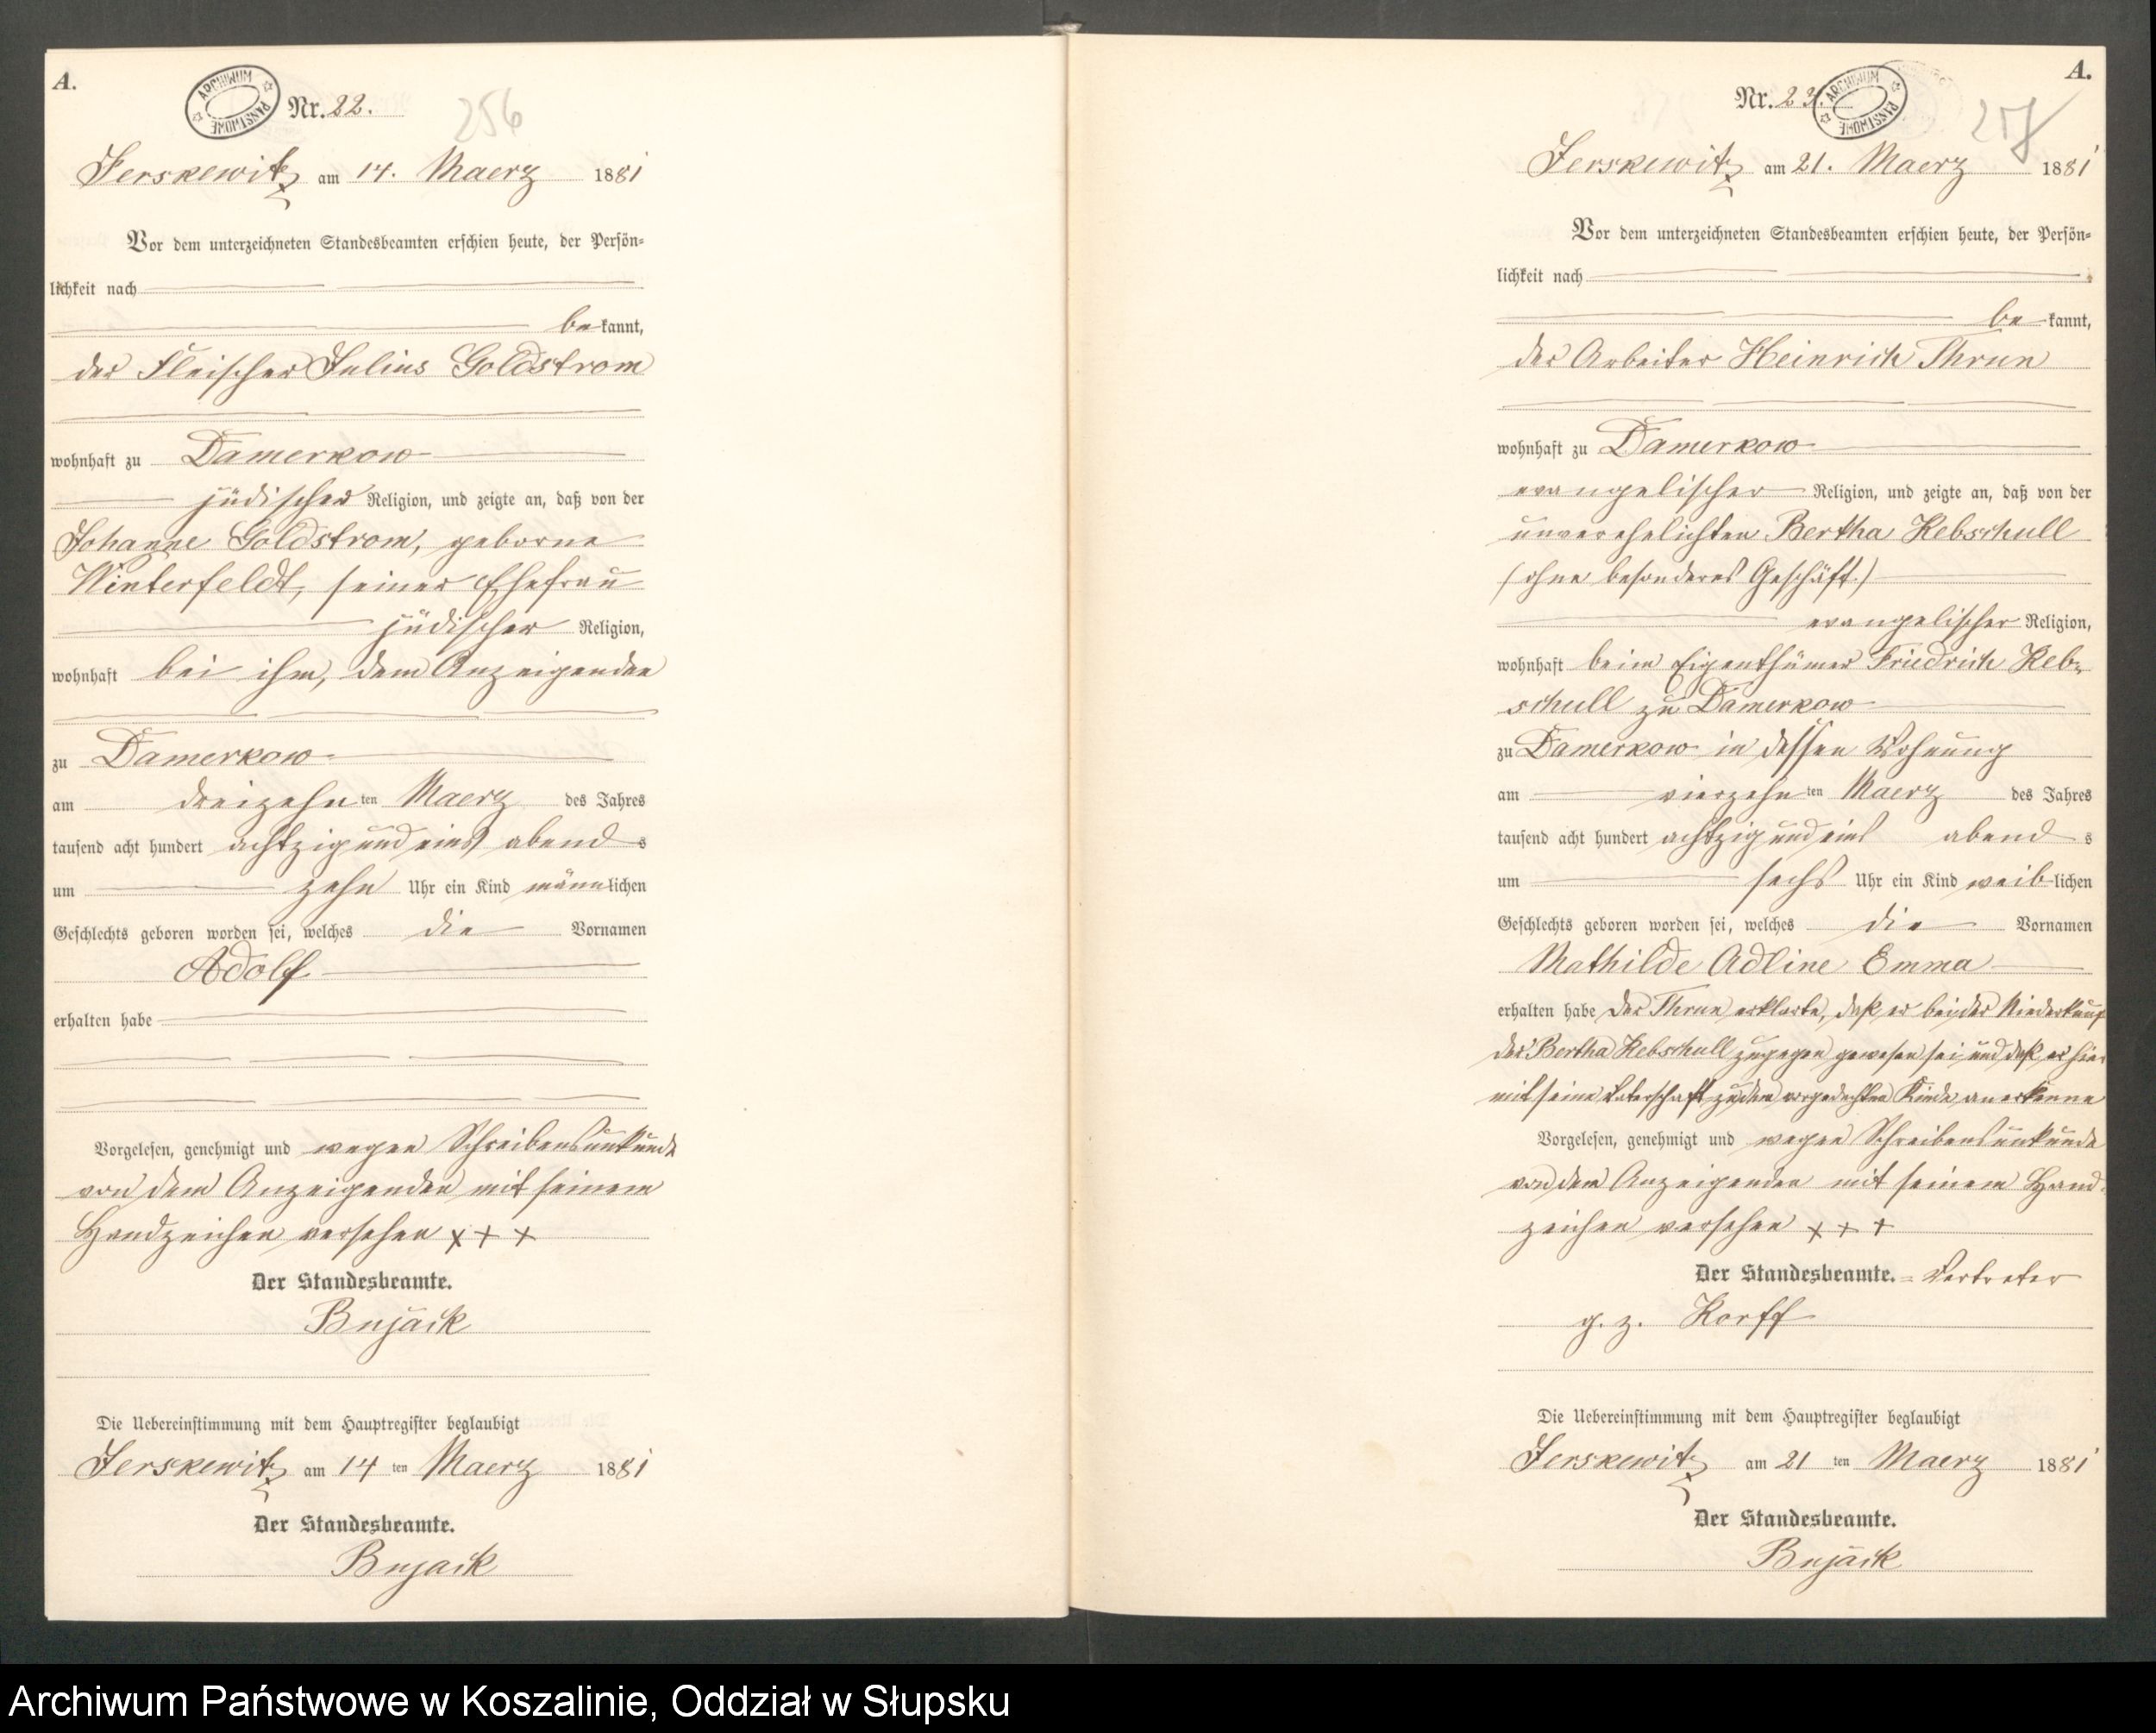 A.
ARCHIWUM PAŃSTWOWE
Nr. 22.
256
Jerskewitz am 14. Maerz 1881
Vor dem unterzeichneten Standesbeamten erschien heute, der Persön=
lichkeit nach
be kannt,
der Fleischer Julius Goldstrom
wohnhaft zu Damerkow
jüdischer Religion, und zeigte an, daß von der
Johanne Goldstrom, geborne
Winterfeldt, seiner Ehefrau
jüdischer Religion,
wohnhaft bei ihm, dem Anzeigenden
zu Damerkow
am dreizehn ten Maerz des Jahres
tausend acht hundert achtzig und eins abend s
um zehn Uhr ein Kind männlichen
Geschlechts geboren worden sei, welches die Vornamen
Adolf
erhalten habe
Vorgelesen, genehmigt und wegen Schreibensunkunde
von dem Anzeigenden mit seinem
Handzeichen versehen x + x
Der Standesbeamte.
Bujack
Die Uebereinstimmung mit dem Hauptregister beglaubigt
Jerskewitz am 14 ten Maerz 1881
Der Standesbeamte.
Bujack
A.
Nr. 23.
ARCHIWUM PAŃSTWOWE
257
Jerskewitz am 21. Maerz 1881
Vor dem unterzeichneten Standesbeamten erschien heute, der Persön=
lichkeit nach
be kannt,
der Arbeiter Heinrich Thrun
wohnhaft zu Damerkow
evangelischer Religion, und zeigte an, daß von der
unverehelichten Bertha Kebschull
(ohne besonderes Geschäft)
evangelischer Religion,
wohnhaft beim Eigenthümer Friedrich Keb=
schull zu Damerkow
zu Damerkow in dessen Wohnung
am vierzehn ten Maerz des Jahres
tausend acht hundert achtzig und eins abend s
um sechs Uhr ein Kind weib lichen
Geschlechts geboren worden sei, welches die Vornamen
Mathilde Adline Emma
erhalten habe Der Thrun erklärte, daß er bei der Niederkunft
der Bertha Kebschull zugegen gewesen sei und daß er hier
mit seine Vaterschaft zu dem vorgedachten Kinde anerkenne
Vorgelesen, genehmigt und wegen Schreibensunkunde
von dem Anzeigenden mit seinem Hand
zeichen versehen x + +
Der Standesbeamte. = Vertreter
g. z. Korff
Die Uebereinstimmung mit dem Hauptregister beglaubigt
Jerskewitz am 21 ten Maerz 1881
Der Standesbeamte.
Bujack
Archiwum Państwowe w Koszalinie, Oddział w Słupsku